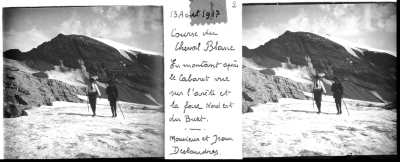 2
13 Août 1917
Course du
Cheval Blanc
En montant après
le Cabaret vue
sur l'arête et
la face Nord est
du Buet.
Monsieur et Jean
Deslandres.